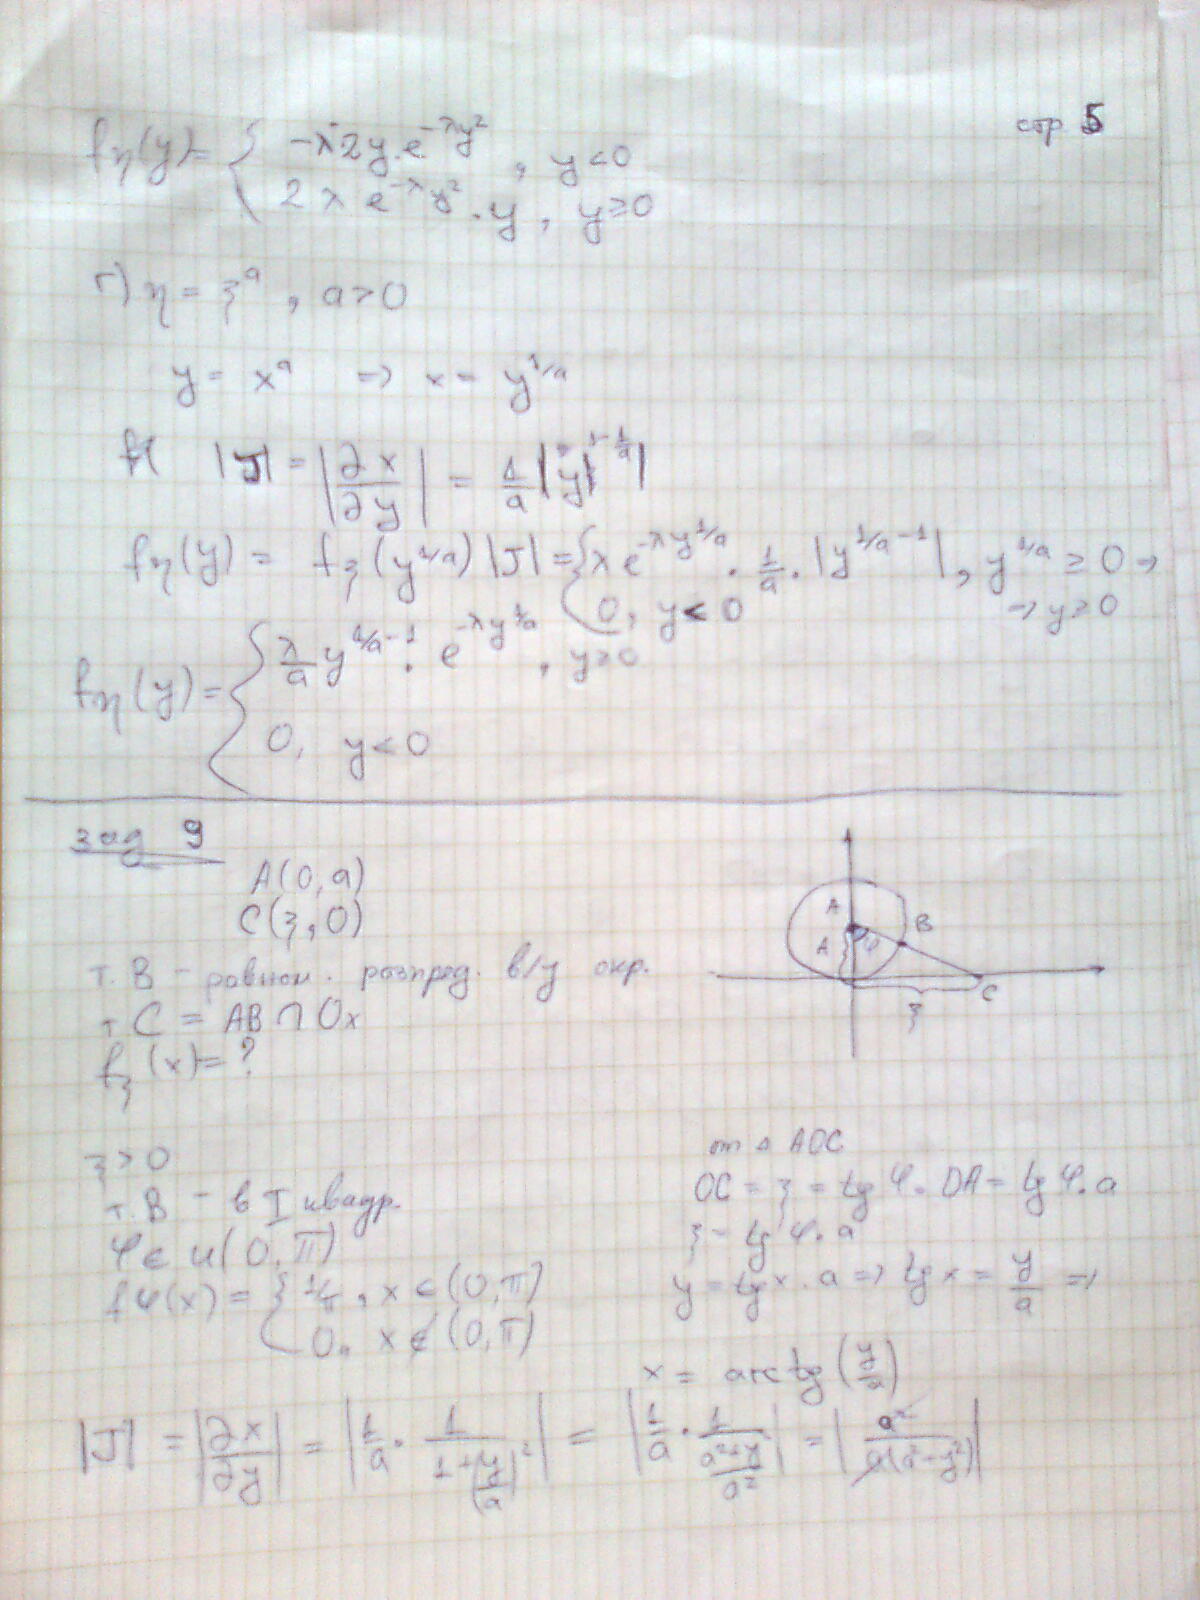 стр 5
fη(y) = { -λ2y.e^{-λy²}, y<0
2λe^{-λy²}.y, y≥0
г) η = ξ^a, a>0
y = x^a => x = y^{1/a}
|J| = |∂x/∂y| = 1/a |y^{1-1/a}|
fη(y) = fξ(y^{1/a})|J| = { λe^{-λy^{1/a}}.1/a.|y^{1/a-1}|, y^{1/a} ≥ 0 ->
0, y<0 -> y≥0
fη(y) = { λ/a y^{1/a-1}. e^{-λy^{1/a}}, y≥0
0, y<0
зад 9
A(0,a)
C(ξ,0)
т.B - равном. разпред. в/у окр.
т C = AB ∩ Ox
fξ(x) = ?
A
A
φ
B
C
ξ
ξ>0
т.B - в I квадр.
φ ∈ u(0,π)
fφ(x) = { 1/π, x∈(0,π)
0, x∉(0,π)
от △ AOC
OC = ξ = tgφ.OA = tgφ.a
ξ = tgφ.a
y = tgx.a => tgx = y/a =>
x = arctg(y/a)
|J| = |∂x/∂y| = |1/a . 1/(1+(y/a)²)| = |1/a . 1/((a²+y)/a²)| = |a²/(a(a²-y²))|